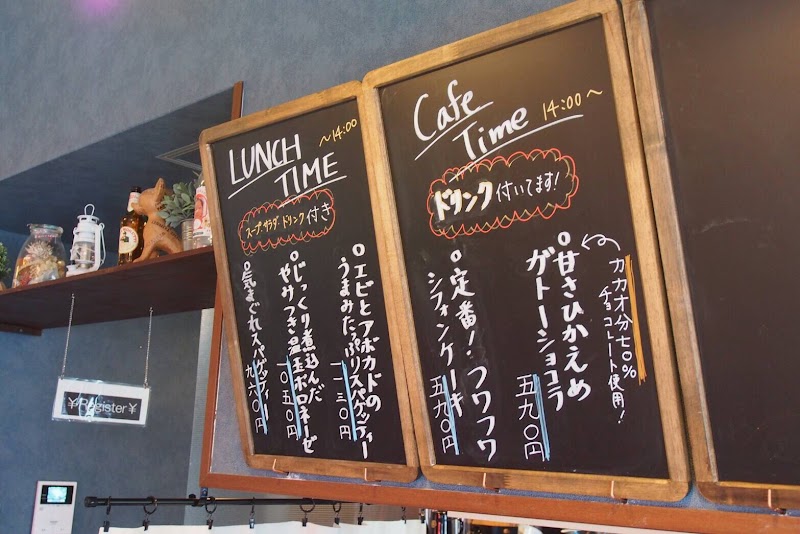 LUNCH
TIME
～14:00
スープ・サラダ・ドリンク付き
○エビとアボカドの
うまみたっぷりスパゲッティー
一一三〇円
○じっくり煮込んだ
やみつき温玉ボロネーゼ
一〇五〇円
○気まぐれスパゲッティー
九六〇円
Cafe
Time
14:00～
ドリンク付いてます!
カカオ分七〇%
チョコレート使用!
○甘さひかえめ
ガトーショコラ
五九〇円
○定番!フワフワ
シフォンケーキ
五九〇円
¥Register¥